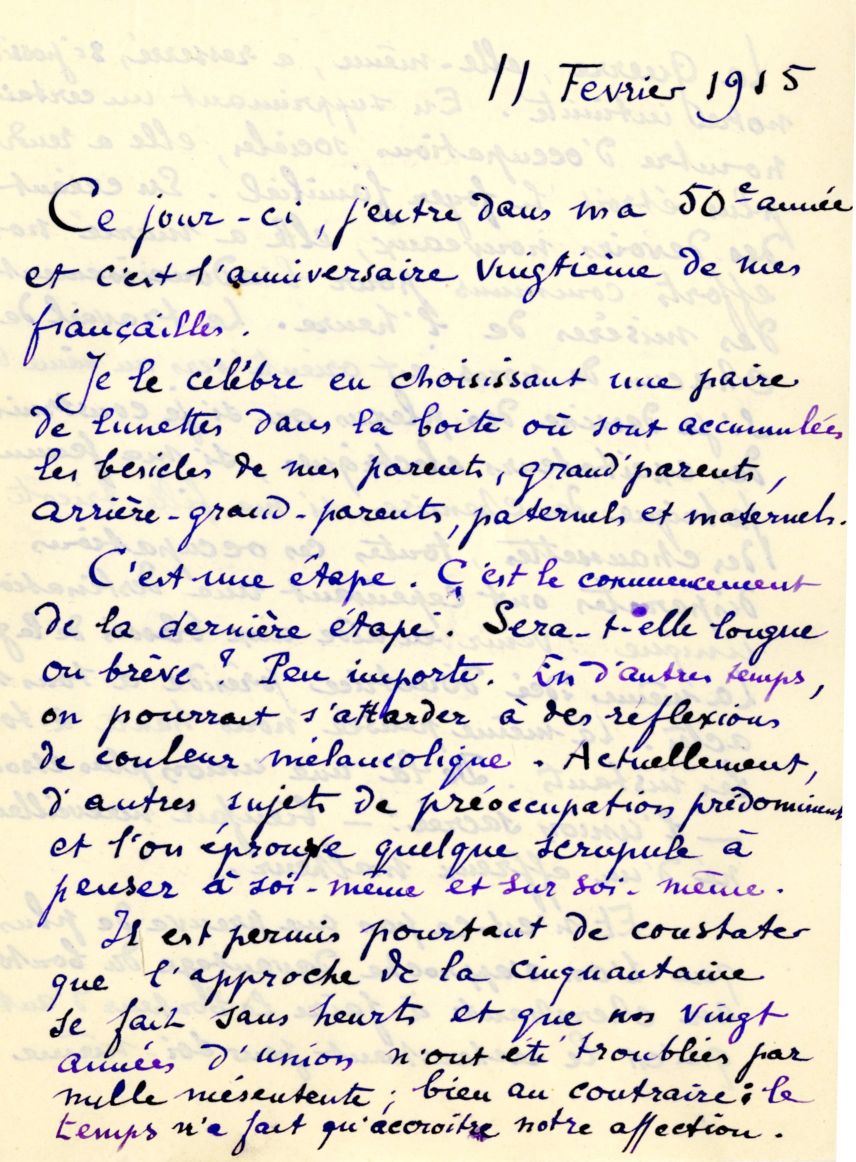 11 Fevrier 1915
Ce jour-ci, j'entre dans ma 50e année
et c'est l'anniversaire vingtième de mes
fiançailles.
Je le célèbre en choisissant une paire
de lunettes dans la boite où sont accumulées
les besicles de mes parents, grand'parents,
arrière-grand-parents, paternels et maternels.
C'est une étape. C'est le commencement
de la dernière étape. Sera-t-elle longue
ou brève ? Peu importe. En d'autres temps,
on pourrait s'attarder à des réflexions
de couleur mélancolique. Actuellement,
d'autres sujets de préoccupation prédominent
et l'on éprouve quelque scrupule à
penser à soi-même et sur soi-même.
Il est permis pourtant de constater
que l'approche de la cinquantaine
se fait sans heurts et que nos vingt
années d'union n'ont été troublées par
nulle mésentente ; bien au contraire : le
temps n'a fait qu'accroître notre affection.